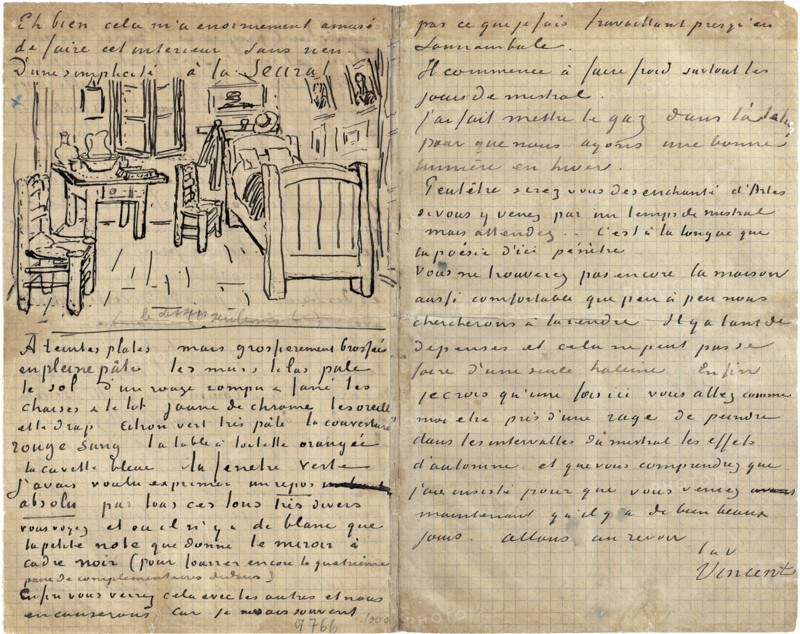 Eh bien cela m'a enormement amusé
de faire cet interieur sans rien.
D'une simplicité à la Seurat
le dessin seulement
A teintes plates mais grossierement brossées
en pleine pâte les murs lilas pale
le sol d'un rouge rompu & fané les
chaises & le lit jaune de chrome les oreillers
et le drap citron vert très pâle la couverture
rouge sang la table à toilette orangée
la cuvette bleue la fenetre verte
J'avais voulu exprimer un repos
absolu par tous ces tons très divers
vous voyez et ou il n'y a de blanc que
la petite note que donne le miroir à
cadre noir (pour fourrer encore la quatrième
paire de complementaires dedans)
Enfin vous verrez cela avec les autres et nous
en causerons car je ne sais souvent
9766
par ce que je fais travaillant presqu'en
somnambule.
Il commence à faire froid surtout les
jours de mistral.
J'ai fait mettre le gaz dans l'atelier
pour que nous ayons une bonne
lumière en hiver.
Peutêtre serez vous desenchanté d'Arles
si vous y venez par un temps de mistral
mais attendez.. C'est à la longue que
la poésie d'ici pénètre
Vous ne trouverez pas encore la maison
aussi comfortable que peu à peu nous
chercherons à la rendre. Il y a tant de
depenses et cela ne peut pas se
faire d'une seule haleine Enfin
je crois qu'une fois ici vous allez comme
moi etre pris d'une rage de peindre
dans les intervalles du mistral les effets
d'automne. et que vous comprendrez que
j'aie insisté pour que vous veniez
maintenant qu'il y a de bien beaux
jours. allons au revoir
t. à v.
Vincent